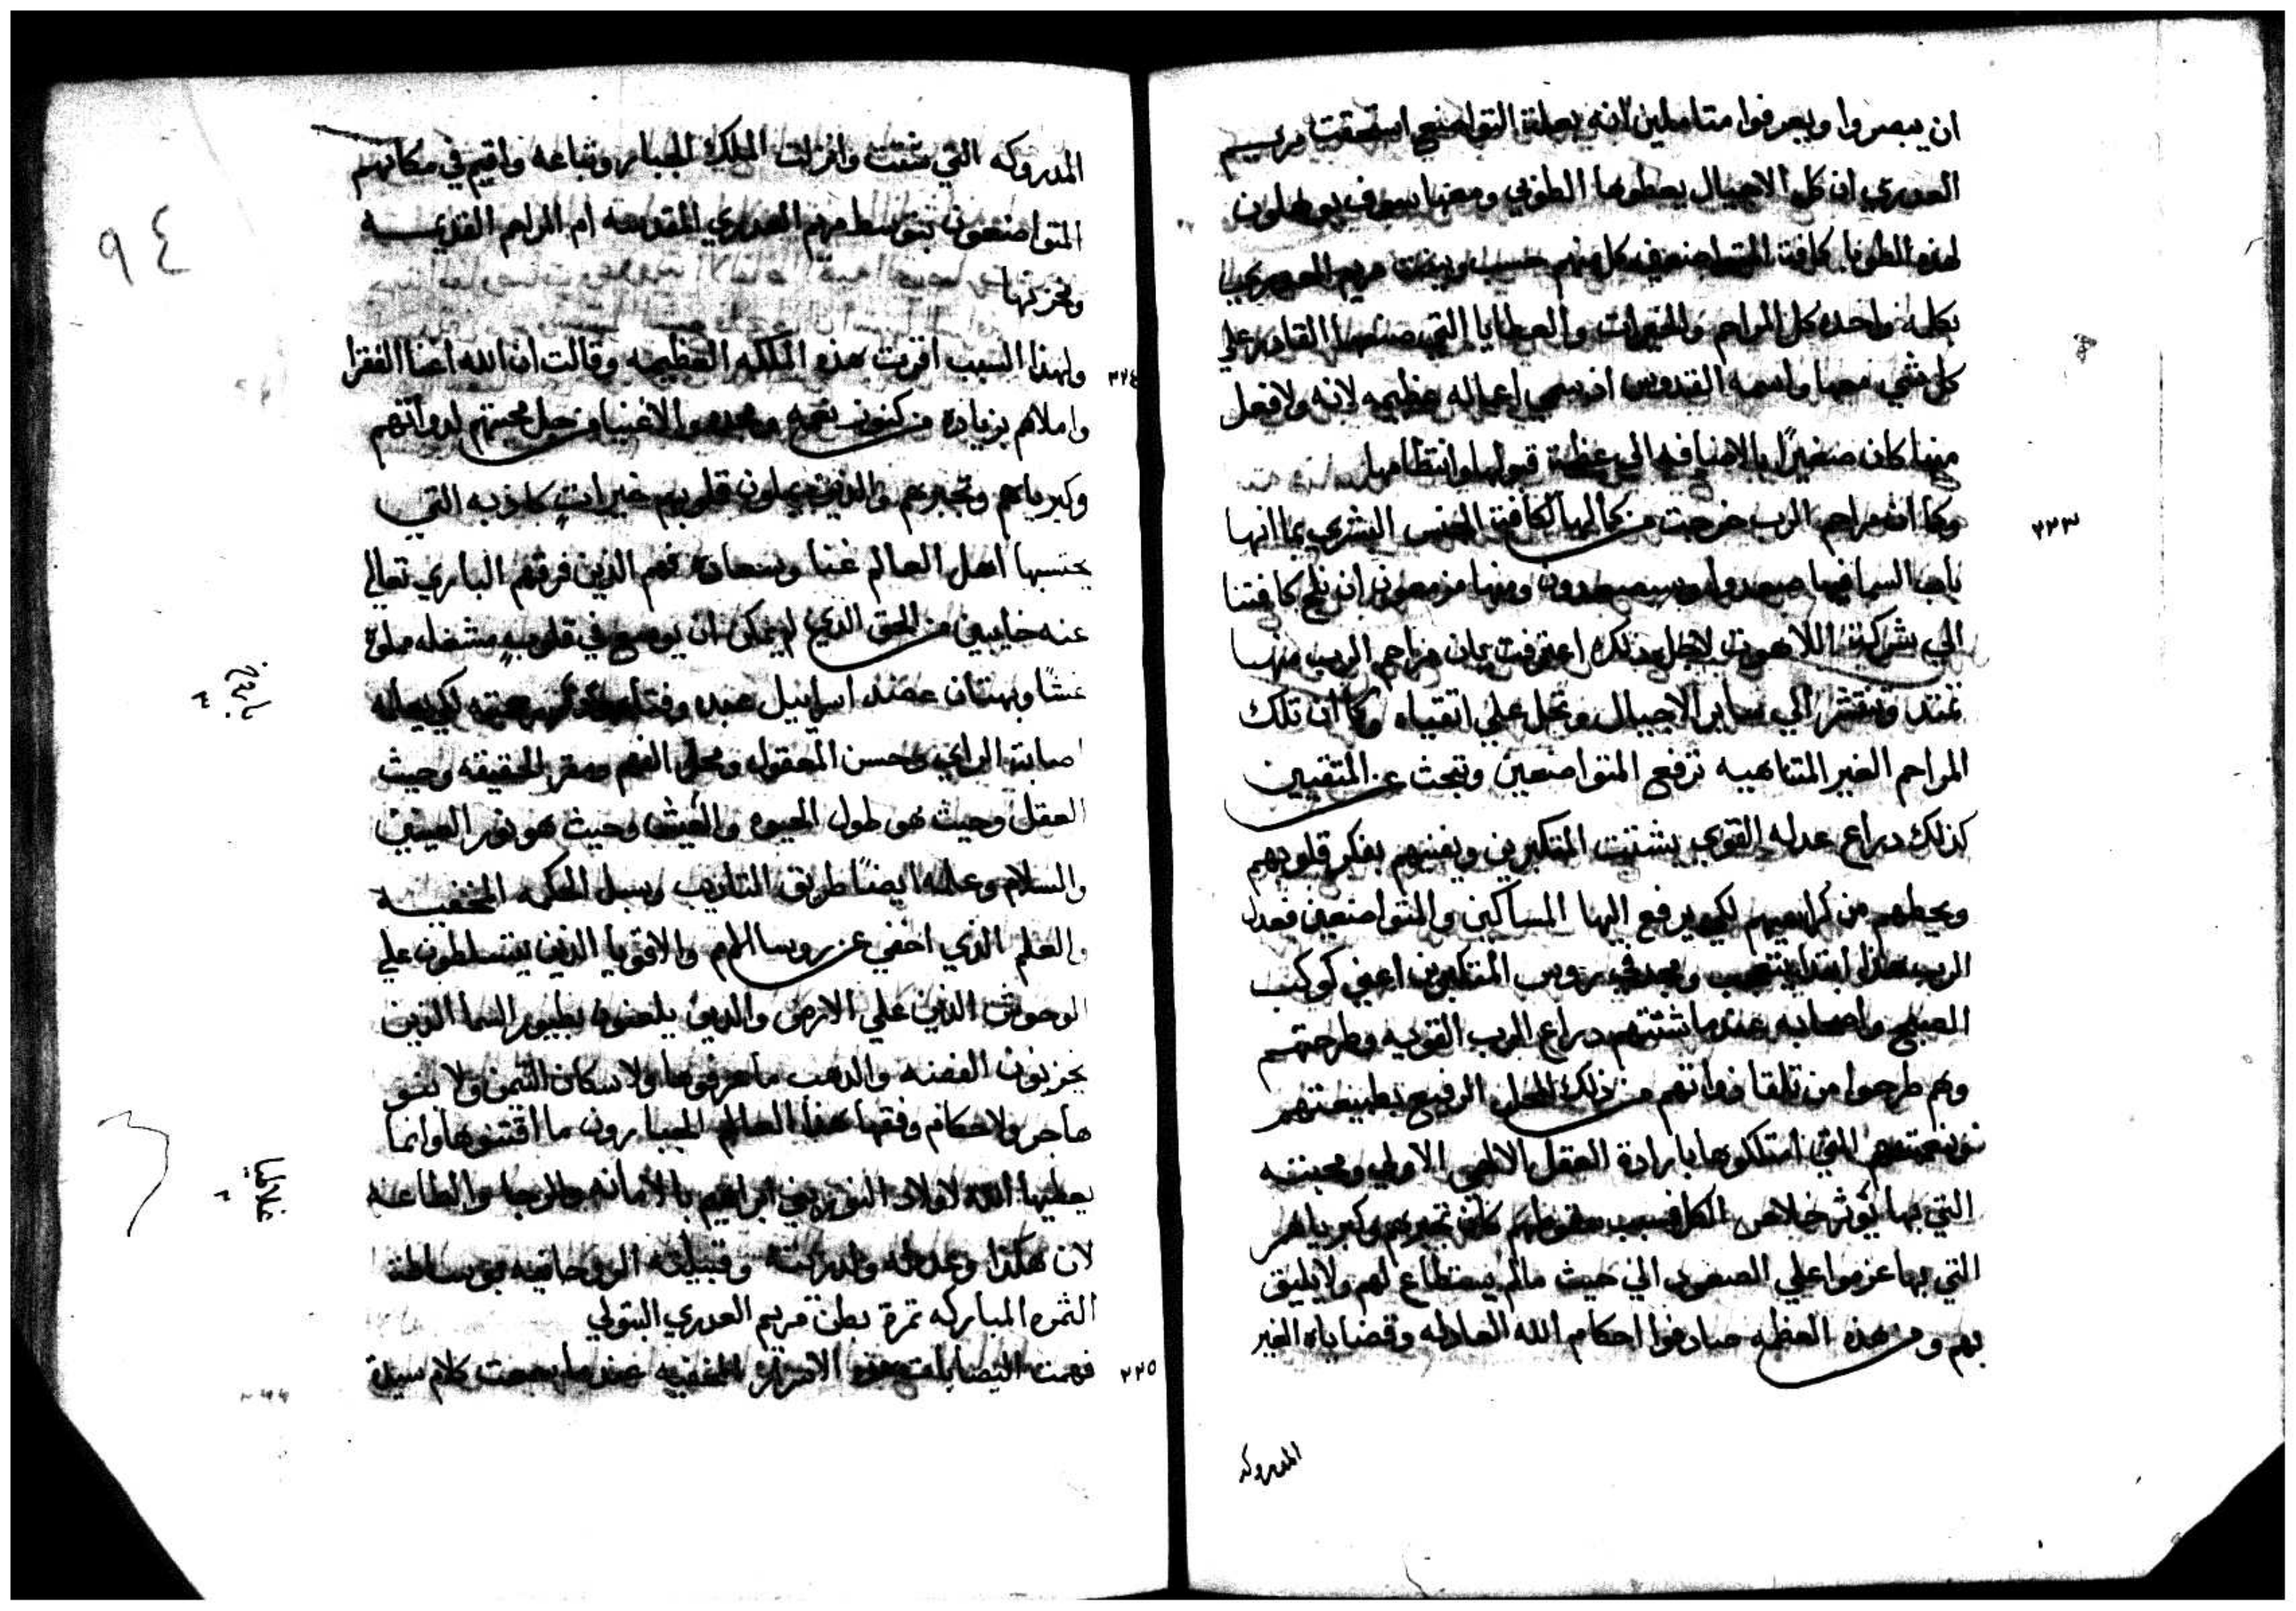 ان يبصروا ويعرفوا متاملين انه بعلة التواضع استحقت مريم
العدري ان كل الاجيال يعطوها الطوبي ومعها سوف يوهلون
لهذه الطوبا كافت المتواضعين كل منهم حسب وبينت مريم العدري
بكلمه واحده كل المراحم والخيرات والعطايا التي صنعها القادر علي
كل شي معها واسمه القدوس اذ سمي اعماله عظيمه لانه ولا فعل
منها كان صغيرًا بالاضافه الي عظمة قبولها وانتظامها
٢٢٣
وكما ان مراحم الرب خرجت من كمالها لكافة الجنس البشري بما انها
باب السما فيها صعدوا وسيصعدون ومنها مزمعون ان نلج كافتنا
الي شركة اللاهوت لاجل ذلك اعترفت بان مراحم الرب منها
تمتد وتنتشر الي ساير الاجيال وتحل علي اتقياه وكما ان تلك
المراحم الغير المتناهيه ترفع المتواضعين وتبحث عن المتقيين
كذلك دراع عدله القوي يشتت المتكبرين ويفنيهم بفكر قلوبهم
ويحطهم من كراسيهم لكي يرفع اليها المساكين والمتواضعين فعدل
الرب هذا ابتدا بتعجب ومجد في رووس المتكبرين اعني كوكب
الصبح واصحابه عندما شتتهم دراع الرب القويه وطرحتهم
وهم طرحوا من تلقا ذواتهم من ذلك المحل الرفيع بطبيعتهم
ونعمتهم التي امتلكوها بارادة العقل الالهي الاولي ومحبته
التي بها يُوثر خلاص الكل فسبب سقوطهم كان تجبرهم وكبرياهم
التي بها عزموا علي الصعود الي حيث مالم يستطاع لهم ولا يليق
بهم ومن هذه العظمه صادفوا احكام الله العادله وقضاياه الغير
المدروكه
٩٤
المدروكه التي شتت وانزلت الملاك الجبار وتباعه واقيم في مكانهم
المتواضعون بتوسط مريم العدري المقدسه ام المراحم القديمه
وخزنتها
٢٢٤
ولهذا السبب اقرت هذه الملكه العظيمه وقالت ان الله اغنا الفقرا
واملاهم بزياده من كنوز نعمه ومجده والاغنيا من اجل محبتهم لدواتهم
وكبرياهم وتجبرهم والذين يملون قلوبهم خيراتٍ كاذبه التي
يحتسبها اهل العالم غنا وسعادة فهم الذين فرقهم الباري تعالي
عنه خايبين من الحق الذي لم يمكن ان يوضع في قلوبٍ مشغله مملوة
غشًا وبهتان عضد اسراييل عبده وفتاه لكي يعلمه
باروخ
٣
اصابة الراي وحسن المعقول ومحل الفهم ومقر الحقيقه وحيث
العقل وحيث هو طول الحيوه والعيش وحيث هو نور العينين
والسلام وعلمه ايضًا طريق التاديب وسبل الحكمه المخفيه
والعلم الذي اخفي عن روسا الامم والاقويا الذين يتسلطون علي
الوحوش الذين علي الارض والذين يلعبون بطيور السما الذين
يخزنون الفضه والدهب ما عرفوها ولا سكان التيمن ولا بنو
هاجر ولا حكام وفقها هذا العالم الجبارون ما اقتنوها وانما
يعطيها الله لاولاد النور بني ابراهيم بالامانه والرجا والطاعه
غلاطيا
٣
لان هكذا وعد له ولذريته وقبيلته الروحانيه بوساطة
الثمره المباركه ثمرة بطن مريم العدري البتولي
٢٢٥
فهمت اليصابات هذه الاسرار المخفيه عندما سمعت كلام سيدة